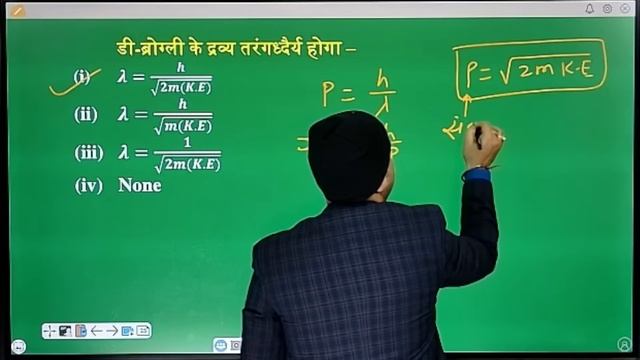 डी-ब्रोग्ली के द्रव्य तरंगध्दैर्य होगा –
(i) λ = h / √2m(K.E)
(ii) λ = h / √m(K.E)
(iii) λ = 1 / √2m(K.E)
(iv) None
P = h / λ
P = √2m K.E